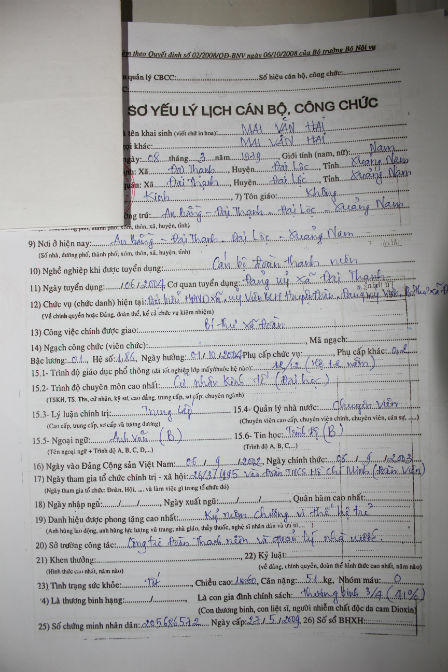 theo Quyết định số 02/2008/QĐ-BNV ngày 06/10/2008 của Bộ trưởng Bộ Nội vụ
quản lý CBCC: Số hiệu cán bộ, công chức:
SƠ YẾU LÝ LỊCH CÁN BỘ, CÔNG CHỨC
tên khai sinh (viết chữ in hoa): MAI VĂN HAI
gọi khác: MAI VĂN HAI
ngày: 08 tháng 3 năm Giới tính (nam, nữ): Nam
Xã Đại Thạnh, Huyện Đại Lộc, Tỉnh Quảng Nam
Xã Đại Thạnh, Huyện Đại Lộc, Tỉnh Quảng Nam
Kinh 7) Tôn giáo: Không
trú: An Bằng - Đại Thạnh - Đại Lộc - Quảng Nam
phố, thành phố, xóm, thôn, xã, huyện, tỉnh)
9) Nơi ở hiện nay: An Bằng - Đại Thạnh - Đại Lộc - Quảng Nam
(Số nhà, đường phố, thành phố, xóm, thôn, xã, huyện, tỉnh)
10) Nghề nghiệp khi được tuyển dụng: Cán bộ đoàn thanh niên
11) Ngày tuyển dụng: /06/2004 Cơ quan tuyển dụng: Đảng uỷ xã Đại Thạnh
12) Chức vụ (chức danh) hiện tại:
(Về chính quyền hoặc Đảng, đoàn thể, kể cả chức vụ kiêm nhiệm)
13) Công việc chính được giao: Bí thư xã Đoàn
14) Ngạch công chức (viên chức): Mã ngạch:
Bậc lương: 01, Hệ số: 1,86, Ngày hưởng: 01/10/2004 Phụ cấp chức vụ: Phụ cấp khác: 0,2
15.1- Trình độ giáo dục phổ thông (đã tốt nghiệp lớp mấy/thuộc hệ nào): 12/12 (Hệ 12 năm)
15.2- Trình độ chuyên môn cao nhất: Cử nhân Kinh tế (Đại học)
(TSKH, TS, Ths, cử nhân, kỹ sư, cao đẳng, trung cấp, sơ cấp; chuyên ngành)
15.3- Lý luận chính trị: Trung cấp 15.4- Quản lý nhà nước: Chuyên viên
(Cao cấp, trung cấp, sơ cấp và tương đương) (Chuyên viên cao cấp, chuyên viên chính, chuyên viên, cán sự, ...)
15.5- Ngoại ngữ: Anh văn (B) 15.6- Tin học: Trình độ (B)
(Tên ngoại ngữ + Trình độ A, B, C, D, ...) (Trình độ A, B, C, ...)
16) Ngày vào Đảng Cộng sản Việt Nam: 05/9/2002, Ngày chính thức: 05/9/2003
17) Ngày tham gia tổ chức chính trị - xã hội: 26/3/1995 Vào Đoàn TNCS Hồ Chí Minh (Đoàn viên)
(Ngày tham gia tổ chức: Đoàn, Hội, ... và làm việc gì trong tổ chức đó)
18) Ngày nhập ngũ: / / , Ngày xuất ngũ: / / Quân hàm cao nhất:
19) Danh hiệu được phong tặng cao nhất: Kỷ niệm chương vì thế hệ trẻ
(Anh hùng lao động, anh hùng lực lượng vũ trang; nhà giáo, thầy thuốc, nghệ sĩ nhân dân và ưu tú, ...)
20) Sở trường công tác: Công tác Đoàn Thanh niên và quản lý nhà nước
21) Khen thưởng: 22) Kỷ luật:
(Hình thức cao nhất, năm nào) (về đảng, chính quyền, đoàn thể hình thức cao nhất, năm nào)
23) Tình trạng sức khỏe: Tốt, Chiều cao: 1m60, Cân nặng: 51 kg, Nhóm máu: O
4) Là thương binh hạng: / , Là con gia đình chính sách: Thương binh 3/4 (41%)
(Con thương binh, con liệt sĩ, người nhiễm chất độc da cam Dioxin)
25) Số chứng minh nhân dân: 205686572 Ngày cấp: 27/5/2004 26) Số sổ BHXH: